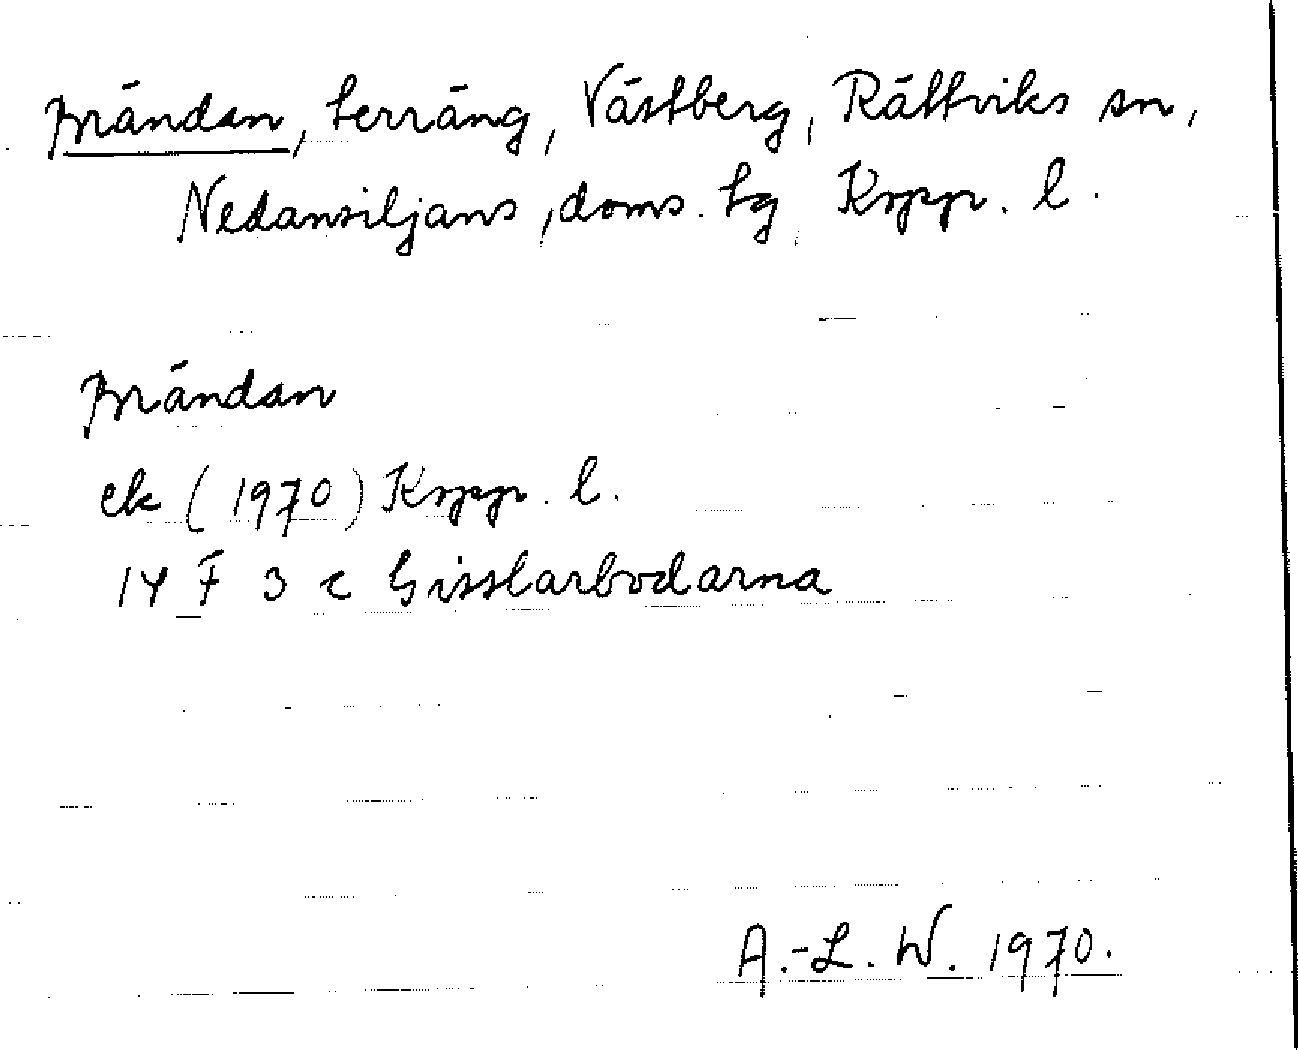 Brändan, terräng, Västberg, Rättviks sn,
Nedansiljans, doms. tg Kopp. l.
Brändan
ek (1970) Kopp. l.
14 F 3 c Gisslarbodarna
A.-L. W. 1970.